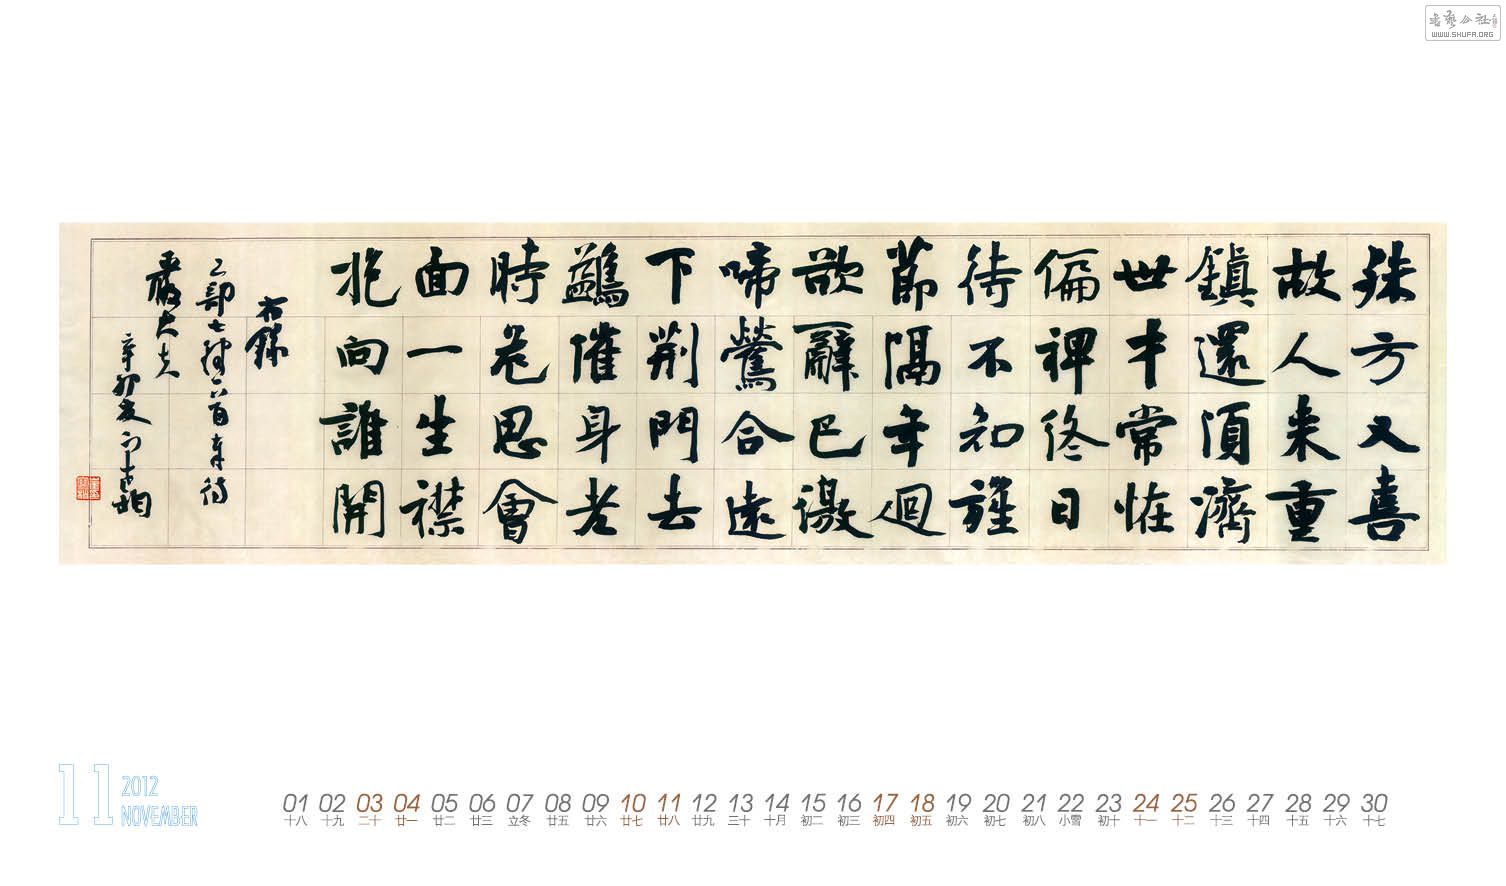 殊方又喜
故人来重
鎮還須濟
世才常恠
偏裨終日
待不知旌
節隔年迴
欲辭巴徼
啼鶯合遠
下荆門去
鷁催身老
時危思會
面一生襟
抱向誰開
右錄
工部七律一首奉待
嚴大夫
辛卯夏
11 2012
NOVEMBER
01 02 03 04 05 06 07 08 09 10 11 12 13 14 15 16 17 18 19 20 21 22 23 24 25 26 27 28 29 30
十八 十九 二十 廿一 廿二 廿三 立冬 廿五 廿六 廿七 廿八 廿九 三十 十月 初二 初三 初四 初五 初六 初七 初八 小雪 初十 十一 十二 十三 十四 十五 十六 十七
WWW.SHUFA.ORG